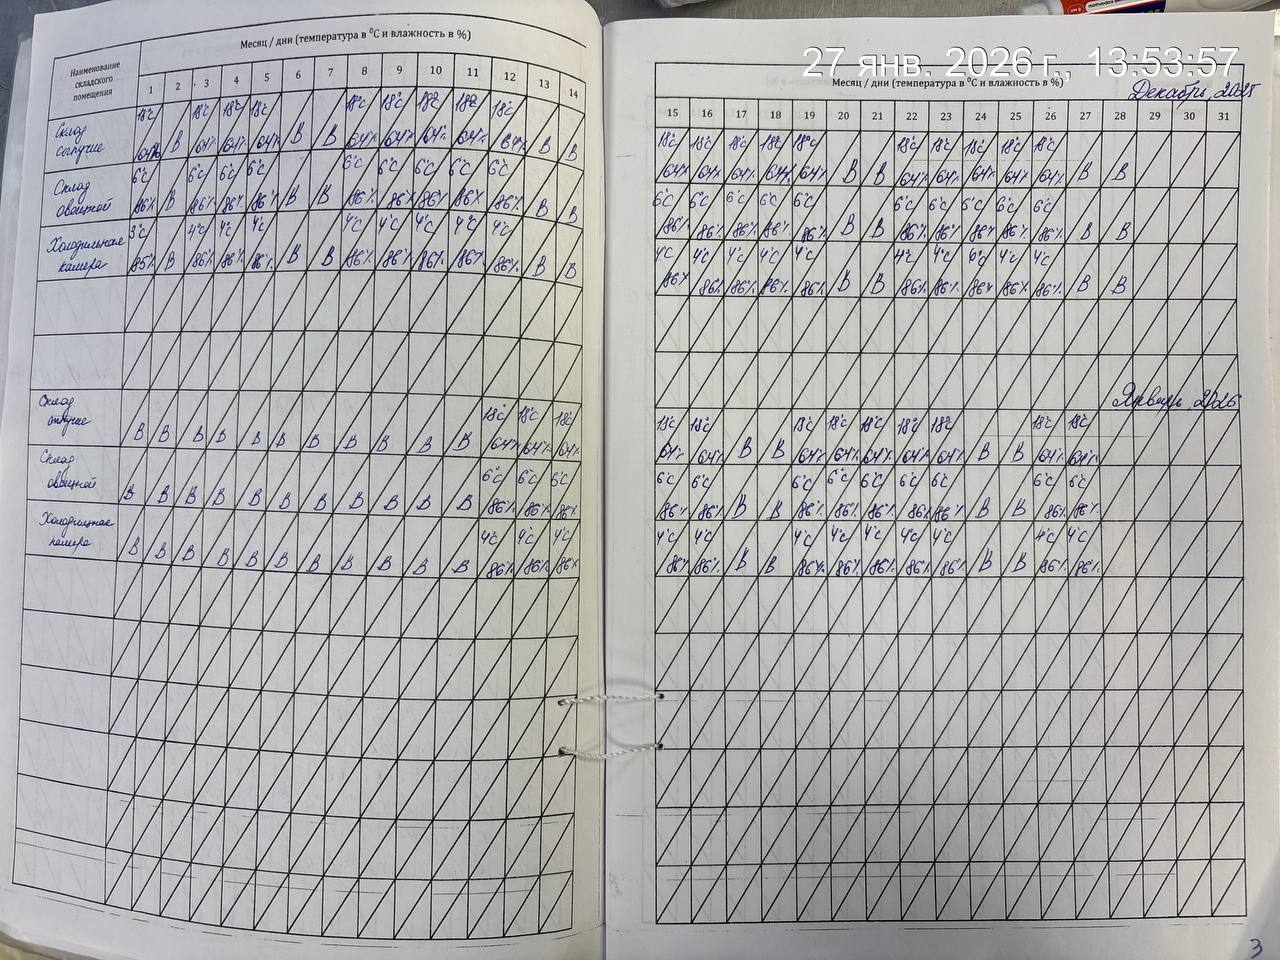 27 янв. 2026 г., 13:53:57
Наименование складского помещения
Месяц / дни (температура в ⁰С и влажность в %)
1 2 3 4 5 6 7 8 9 10 11 12 13 14
Склад сыпучие
18°C 18°C 18°C 18°C 18°C 18°C 18°C 18°C 18°C
64% В 64% 64% 64% В В 64% 64% 64% 64% 64% В В
Склад овощной
6°C 6°C 6°C 6°C 6°C 6°C 6°C 6°C 6°C
86% В 86% 86% 86% В В 86% 86% 86% 86% 86% В В
Холодильная камера
3°C 4°C 4°C 4°C 4°C 4°C 4°C 4°C 4°C
85% В 86% 86% 86% В В 86% 86% 86% 86% 86% В В
Склад
18°C 18°C 18°C
В В В В В В В В В В В 64% 64% 64%
Склад овощной
6°C 6°C 6°C
В В В В В В В В В В В 86% 86% 86%
камера
4°C 4°C 4°C
В В В В В В В В В В В 86% 86% 86%
Месяц / дни (температура в ⁰С и влажность в %)
Декабрь, 2025
15 16 17 18 19 20 21 22 23 24 25 26 27 28 29 30 31
18°C 18°C 18°C 18°C 18°C 18°C 18°C 18°C 18°C 18°C
64% 64% 64% 64% 64% В В 64% 64% 64% 64% 64% В В
6°C 6°C 6°C 6°C 6°C 6°C 6°C 6°C 6°C 6°C
86% 86% 86% 86% 86% В В 86% 86% 86% 86% 86% В В
4°C 4°C 4°C 4°C 4°C 4°C 4°C 4°C 4°C
86% 86% 86% 86% 86% В В 86% 86% 86% 86% 86% В В
Январь, 2026
18°C 18°C 18°C 18°C 18°C 18°C 18°C 18°C 18°C
64% 64% В В 64% 64% 64% 64% 64% В В 64% 64%
6°C 6°C 6°C 6°C 6°C 6°C 6°C 6°C 6°C
86% 86% В В 86% 86% 86% 86% 86% В В 86% 86%
4°C 4°C 4°C 4°C 4°C 4°C 4°C 4°C 4°C
86% 86% В В 86% 86% 86% 86% 86% В В 86% 86%
3